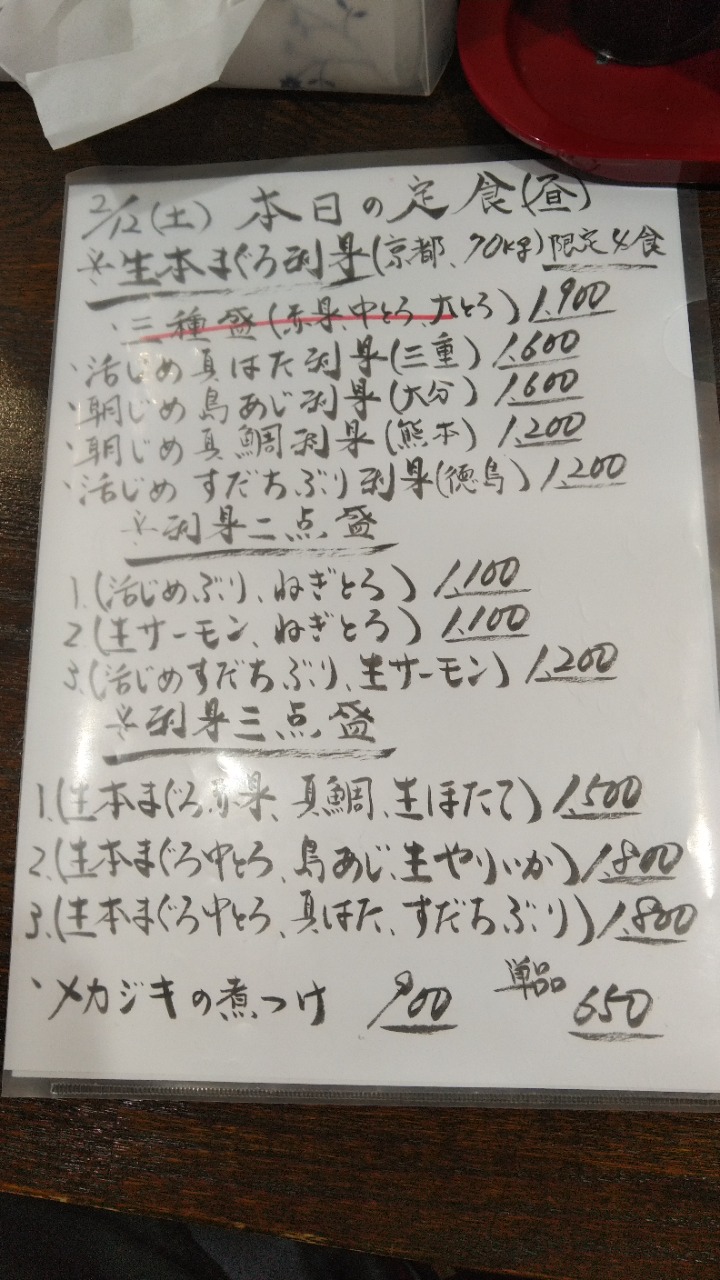 2/12(土) 本日の定食(昼)
※生本まぐろ刺身(京都、70kg)限定4食
・三種盛(赤身、中とろ、大とろ) 1,900
・活じめ真はた刺身(三重) 1,600
・朝じめ島あじ刺身(大分) 1,600
・朝じめ真鯛刺身(熊本) 1,200
・活じめすだちぶり刺身(徳島) 1,200
※刺身二点盛
1.(活じめぶり、ねぎとろ) 1,100
2.(生サーモン、ねぎとろ) 1,100
3.(活じめすだちぶり、生サーモン) 1,200
※刺身三点盛
1.(生本まぐろ赤身、真鯛、生ほたて) 1,500
2.(生本まぐろ中とろ、島あじ、生やりいか) 1,800
3.(生本まぐろ中とろ、真はた、すだちぶり) 1,800
・メカジキの煮つけ 900 単品 650